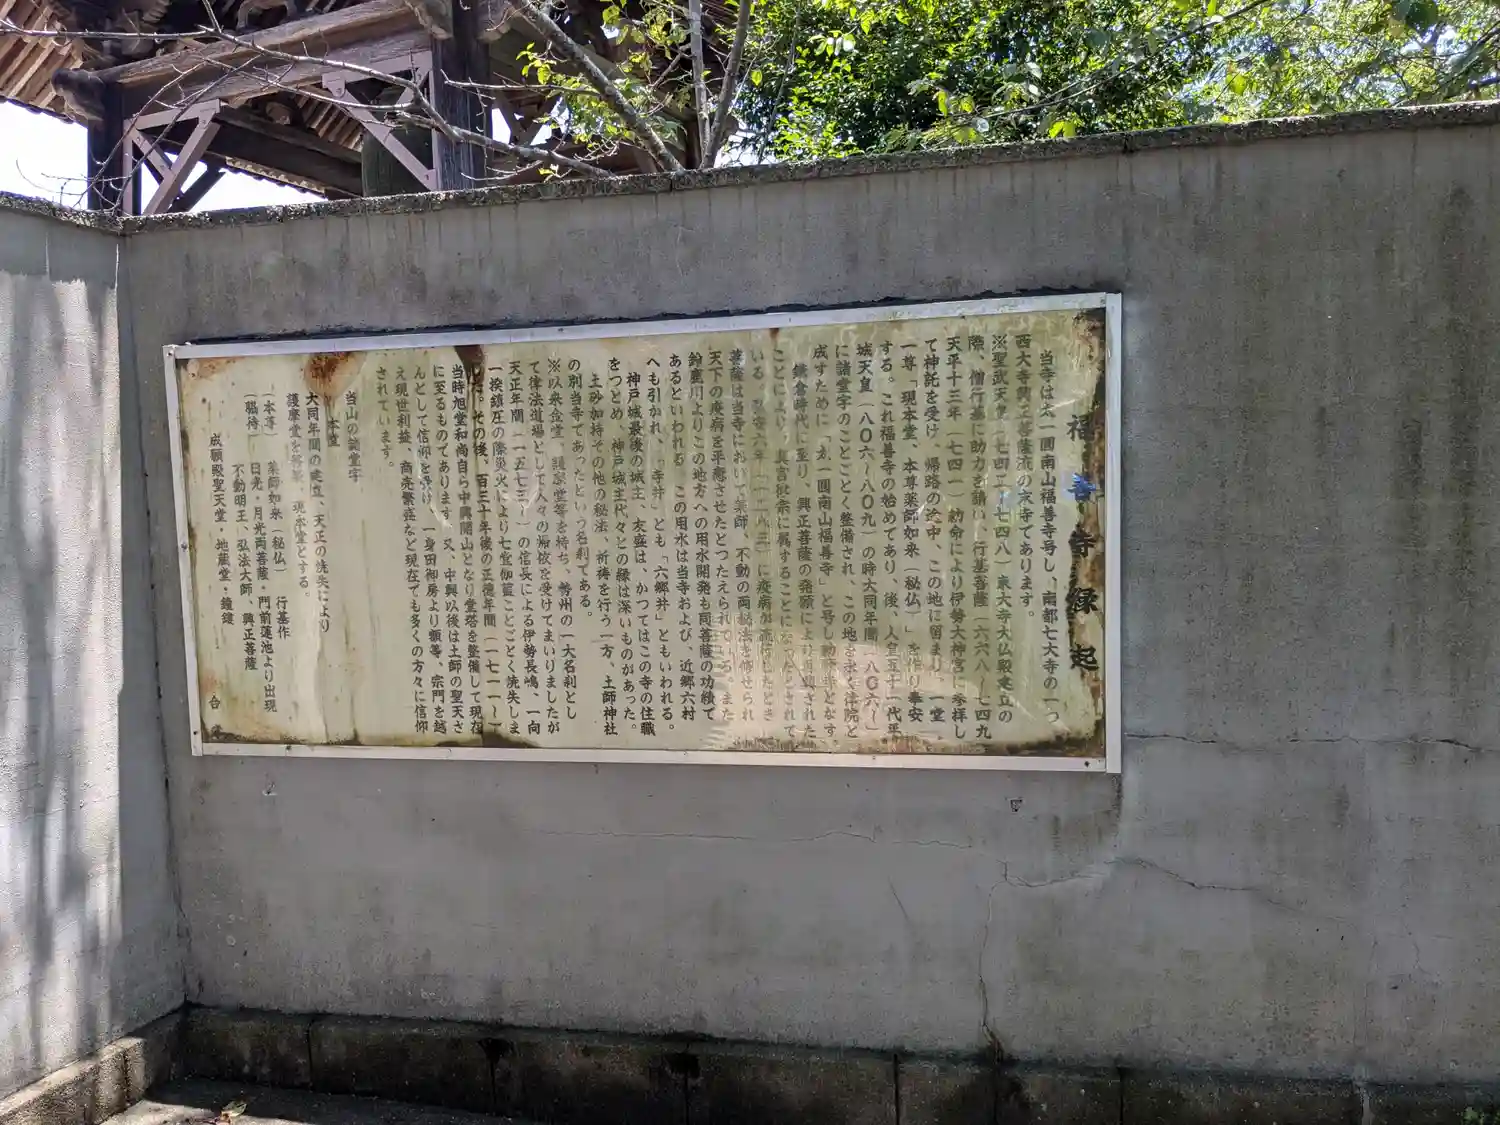 福善寺縁起
当寺は太一圓南山福善寺号し、南都七大寺の一つ
西大寺興正菩薩流の末寺であります。
※聖武天皇(七四二~七四八)東大寺大仏殿建立の
際、僧行基に助力を請い、行基菩薩(六六八~七四九
天平十三年(七四一)勅命により伊勢大神宮に参拝し
て神託を受け、帰路の途中、この地に留まり、一堂、
一尊「現本堂、本尊薬師如来(秘仏)」を作り奉安
する。これ福善寺の始めであり、後、人皇五十一代平
城天皇(八〇六~八〇九)の時大同年間(八〇六~)
に諸堂宇のことごとく整備され、この地を永く律院と
成すために「太一圓南山福善寺」と号し勅願寺となす。
鎌倉時代に至り、興正菩薩の発願により再興された
ことにより、真言律宗に属することになったとされて
いる。弘安六年(一二八三)に疫病が流行したとき
菩薩は当寺において薬師、不動の両秘法を修せられ
天下の疫病を平癒させたとつたえられている。また
鈴鹿川よりこの地方への用水開発も同菩薩の功績で
あるといわれる この用水は当寺および、近郷六村
へも引かれ、「寺井」とも「六郷井」ともいわれる。
神戸城最後の城主、友盛は、かつてはこの寺の住職
をつとめ、神戸城主代々との縁は深いものがあった。
土砂加持その他の秘法、祈祷を行う一方、土師神社
の別当寺であったという名刹である。
※以来金堂、護摩堂等を持ち、勢州の一大名刹とし
て律法道場として人々の帰依を受けてまいりましたが
天正年間(一五七三~)の信長による伊勢長嶋、一向
一揆鎮圧の際災火により七堂伽藍ことごとく焼失しま
した。その後、百三十年後の正徳年間(一七一一~)
当時旭堂和尚自ら中興開山となり堂塔を整備して現在
に至るものであります。又、中興以後は土師の聖天さ
んとして信仰を受け、一身田御房より額等、宗門を越
え現世利益、商売繁盛など現在でも多くの方々に信仰
されています。
当山の諸堂宇
本堂
大同年間の建立、天正の焼失により
護摩堂を 現本堂とする。
(本尊) 薬師如来(秘仏) 行基作
(脇侍) 日光・月光両菩薩・門前蓮池より出現
不動明王、弘法大師、興正菩薩
成願殿聖天堂・地蔵堂・鐘鏤
合掌